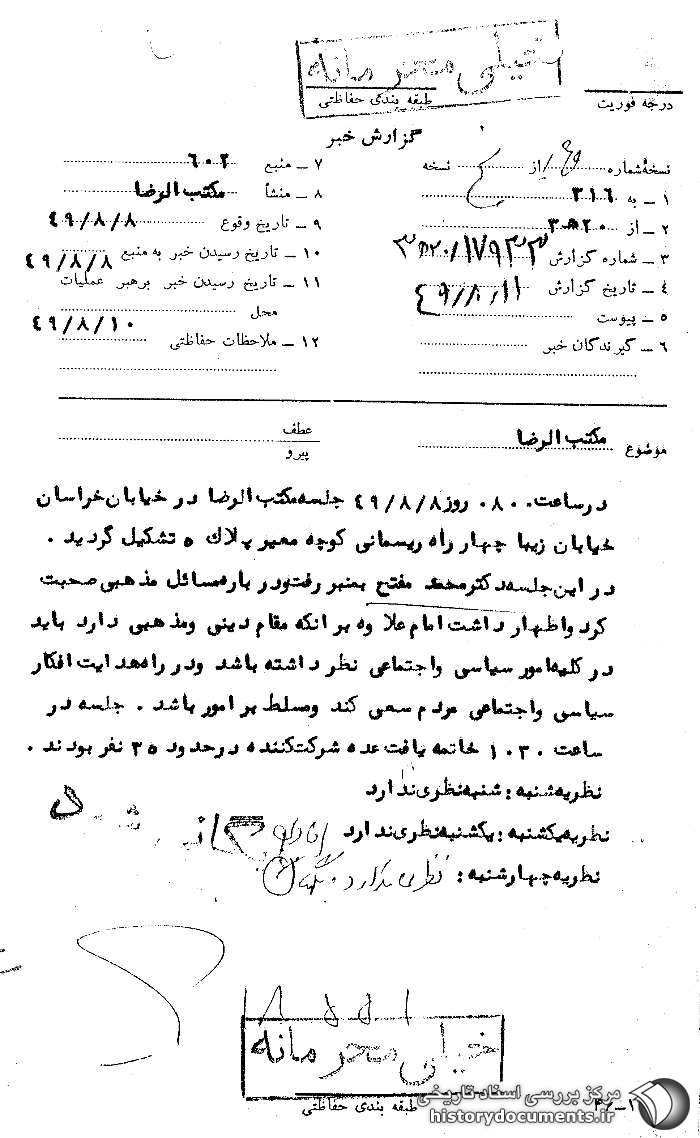 خیلی محرمانه
طبقه بندی حفاظتی
درجه فوریت
گزارش خبر
نسخه شماره از نسخه
۱ – به ۳۱۶
۲ – از ۲۰ﻫ۳
۳ – شماره گزارش ۱۷۹۳۳/۲۰ﻫ۳
۴ – تاریخ گزارش ۴۹/۸/۱۱
۵ – پیوست
۶ – گیرندگان خبر
۷ – منبع ۶۰۲
۸ – منشأ مکتب الرضا
۹ – تاریخ وقوع ۴۹/۸/۸
۱۰ – تاریخ رسیدن خبر به منبع ۴۹/۸/۸
۱۱ – تاریخ رسیدن خبر برهبر عملیات
محل ۴۹/۸/۱۰
۱۲ – ملاحظات حفاظتی
موضوع مکتب الرضا
عطف
پیرو
در ساعت ۰۸۰۰ روز ۴۹/۸/۸ جلسه مکتب الرضا در خیابان خراسان
خیابان زیبا چهار راه ریسمانی کوچه معیر پلاك ۵ تشکیل گردید .
در این جلسه دکتر محمد مفتح بمنبر رفت و در باره مسائل مذهبی صحبت
کرد و اظهار داشت امام علاوه بر انکه مقام دینی ومذهبی دارد باید
در کلیه امور سیاسی واجتماعی نظر داشته باشد ودر راه هدایت افکار
سیاسی واجتماعی مردم سعی کند ومسلط بر امور باشد . جلسه در
ساعت ۱۰۳۰ خاتمه یافت عده شرکت کننده درحدود ۳۵ نفر بودند .
نظریه شنبه : شنبه نظری ندارد
نظریه یکشنبه : یکشنبه نظری ندارد
نظریه چهارشنبه : نظری ندارد .
خیلی محرمانه
طبقه بندی حفاظتی
مرکز بررسی اسناد تاریخی
historydocuments.ir